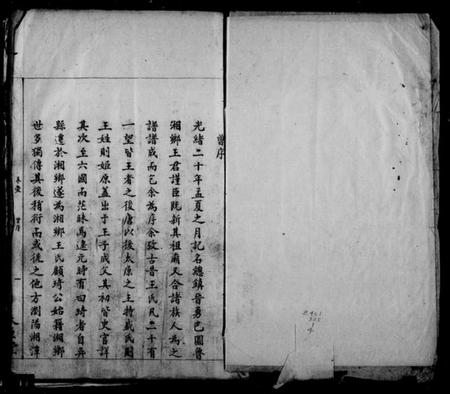 譜序
光緒二十年孟夏之月記名總鎮晉勇巴圖魯
湘鄉王君謹臣既新其祖廟又合諸族人為之
譜譜成而乞余為序余攷古昔王氏凡二十有
一望皆王者之後唐以後太原之王特盛氏則
王姓則姬原蓋出于王子成父其初皆史官詳
其次至六國而茫昧焉逮元時有曰琦者自
縣遷於湘鄉遂為湘鄉王氏顧琦公始籍湘鄉
世多獨傳其後稍衍而或後之他方瀏陽湘潭